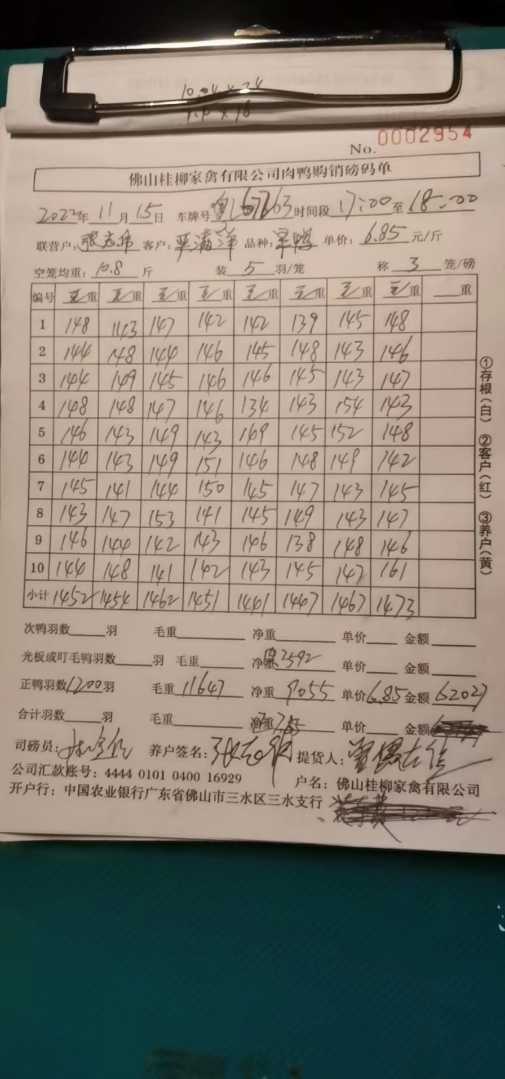 No. 0002954
佛山桂柳家禽有限公司肉鸭购销磅码单
2022年 11月 15日 车牌号 时间段 17:00 至 18:00
联营户: 客户: 品种: 单价: 6.85 元/斤
空笼均重: 10.8 斤 装 5 羽/笼 称 3 笼/磅
编号 毛重 毛重 毛重 毛重 毛重 毛重 毛重 毛重 重
1 148 143 147 142 142 139 145 148
2 144 148 144 146 145 148 143 146
3 144 149 145 146 146 145 143 147
4 148 148 147 146 134 143 154 143
5 146 143 149 143 149 145 152 148
6 144 143 149 151 146 148 149 142
7 145 141 144 150 145 147 143 145
8 143 147 153 141 145 149 143 147
9 146 144 142 143 146 138 148 146
10 144 148 141 142 143 145 147 161
小计 1452 1454 1462 1451 1441 1447 1467 1473
次鸭羽数 羽 毛重 净重 单价 金额
光板或叮毛鸭羽数 羽 毛重 净重 2592 单价 金额
正鸭羽数 1200 羽 毛重 11647 净重 9055 单价 6.85 金额 62027
合计羽数 羽 毛重 净重 单价 金额
司磅员: 养户签名: 提货人:
公司汇款账号: 4444 0101 0400 16929 户名: 佛山桂柳家禽有限公司
开户行: 中国农业银行广东省佛山市三水区三水支行
①存根(白) ②客户(红) ③养户(黄)